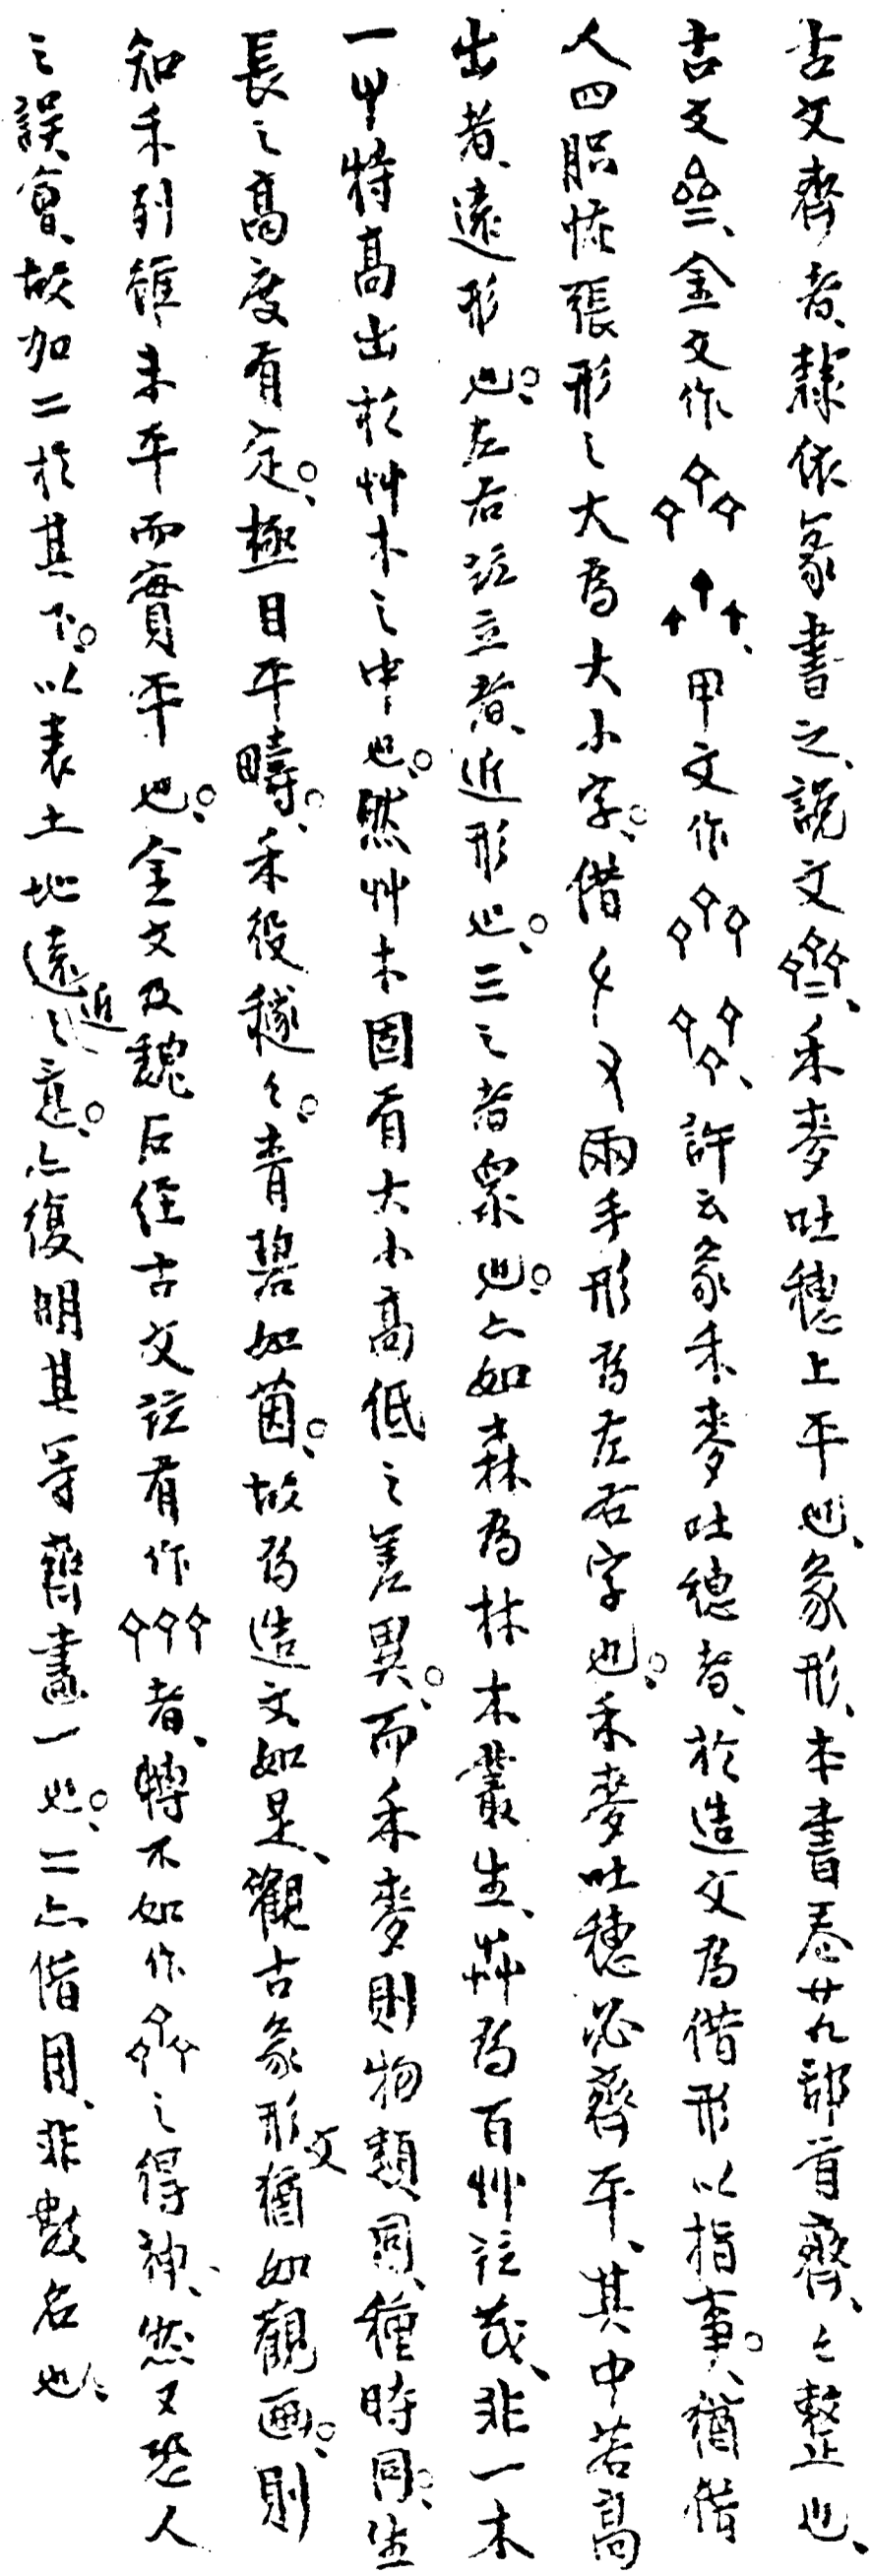 古文齊者、隸依篆書之、說文、禾麥吐穗上平也、象形、本書卷廿九部首齊、々整也、
古文、金文作、甲文作、許云象禾麥吐穗者、於造文為借形以指事。猶借
人四張形之大為大小字。借ナ又兩手形為左右字也。禾麥吐穗必齊平、其中若高
出者、遠形也。左右竝立者、近形也。三之者眾也。亦如森為林木叢生、芔為百艸竝茂、非一木
一屮特高出於艸木之中也。然艸木固有大小高低之差異。而禾麥則物類同、種時同。生
長之高度有定。極目平疇。禾役穟々。青碧如茵。故為造文如是、觀古象形文猶如觀画。則
知禾列雖未平而實平也。金文及魏石經古文竝有作者、轉不如作之得神、然又恐人
之誤會、故加二於其下。以表土地遠近之意。亦復明其等齊畫一也。二亦借用、非數名也、